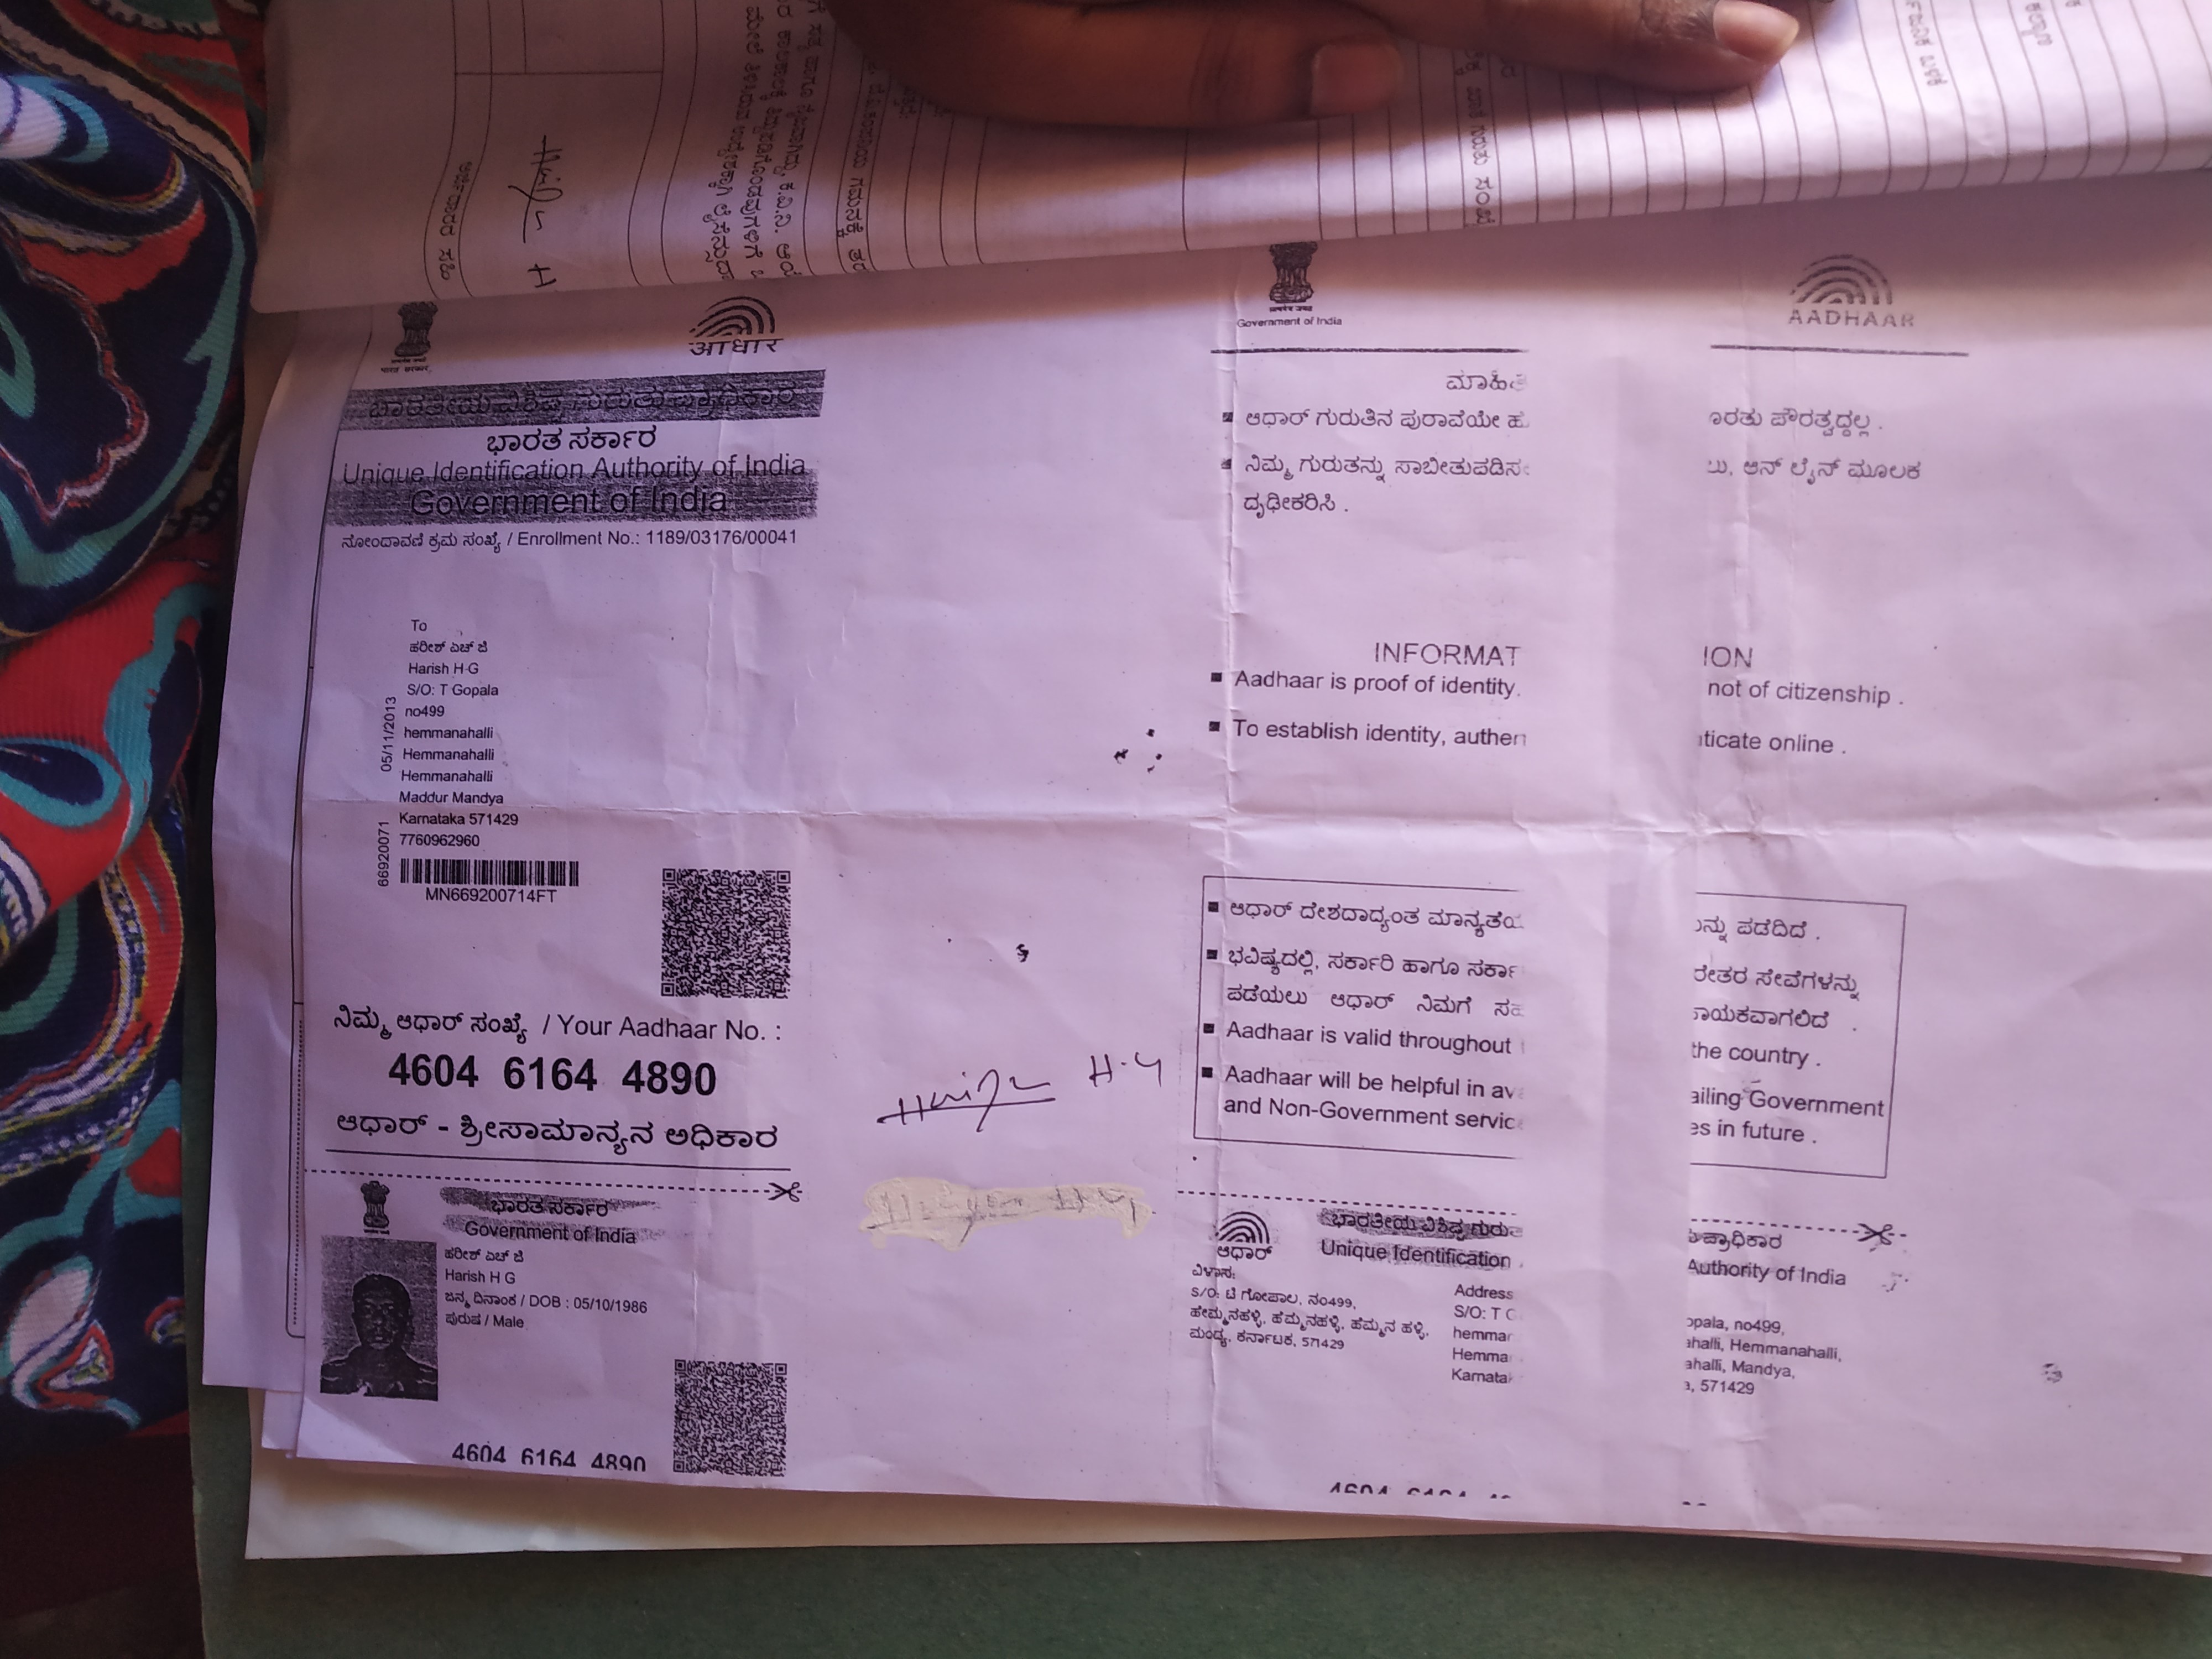 भारत सरकार
आधार
ಭಾರತೀಯ ವಿಶಿಷ್ಟ ಗುರುತು ಪ್ರಾಧಿಕಾರ
ಭಾರತ ಸರ್ಕಾರ
Unique Identification Authority of India
Government of India
ನೋಂದಾವಣೆ ಕ್ರಮ ಸಂಖ್ಯೆ / Enrollment No.: 1189/03176/00041
To
ಹರೀಶ್ ಎಚ್ ಜಿ
Harish H G
S/O: T Gopala
no499
hemmanahalli
Hemmanahalli
Hemmanahalli
Maddur Mandya
Karnataka 571429
7760962960
05/11/2013
66920071
MN669200714FT
ನಿಮ್ಮ ಆಧಾರ್ ಸಂಖ್ಯೆ / Your Aadhaar No. :
4604 6164 4890
ಆಧಾರ್ - ಶ್ರೀಸಾಮಾನ್ಯನ ಅಧಿಕಾರ
ಭಾರತ ಸರ್ಕಾರ
Government of India
ಹರೀಶ್ ಎಚ್ ಜಿ
Harish H G
ಜನ್ಮ ದಿನಾಂಕ / DOB : 05/10/1986
ಪುರುಷ / Male
4604 6164 4890
Government of India
AADHAAR
ಆಧಾರ್ ಗುರುತಿನ ಪುರಾವೆಯೇ ಹೊರತು ಪೌರತ್ವದ್ದಲ್ಲ .
ನಿಮ್ಮ ಗುರುತನ್ನು ಸಾಬೀತುಪಡಿಸಲು, ಆನ್ ಲೈನ್ ಮೂಲಕ
ದೃಢೀಕರಿಸಿ .
INFORMAT ION
Aadhaar is proof of identity. not of citizenship .
To establish identity, authenticate online .
ಆಧಾರ್ ದೇಶದಾದ್ಯಂತ ಮಾನ್ಯತೆಯನ್ನು ಪಡೆದಿದೆ .
ಭವಿಷ್ಯದಲ್ಲಿ, ಸರ್ಕಾರಿ ಹಾಗೂ ಸರ್ಕಾರೇತರ ಸೇವೆಗಳನ್ನು
ಪಡೆಯಲು ಆಧಾರ್ ನಿಮಗೆ ಸಹಾಯಕವಾಗಲಿದೆ .
Aadhaar is valid throughout the country .
Aadhaar will be helpful in availing Government
and Non-Government services in future .
ಆಧಾರ್
ಭಾರತೀಯ ವಿಶಿಷ್ಟ ಗುರುತು ಪ್ರಾಧಿಕಾರ
Unique Identification Authority of India
ವಿಳಾಸ:
S/O: ಟಿ ಗೋಪಾಲ, ನಂ499,
ಹೇಮ್ಮನಹಳ್ಳಿ, ಹೆಮ್ಮನಹಳ್ಳಿ, ಹೆಮ್ಮನ ಹಳ್ಳಿ,
ಮಂಡ್ಯ, ಕರ್ನಾಟಕ, 571429
Address
S/O: T Gopala, no499,
hemmanahalli, Hemmanahalli,
Hemmanahalli, Mandya,
Karnataka, 571429